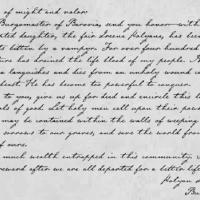 of might and valor:
Burgomaster of Barovia, send you honor—with
ted daughter, the fair Ireena Kolyana, has been
bitten by a vampyr. For over four hundred
tures has drained the life blood of my people. N
languishes and dies from an unholy wound ca
beast. He has become too powerful to conquer.
to you, give us up for dead and encircle this l
ols of good. Let holy men call upon their powe
may be contained within the walls of weeping
r sorrows to our graves, and save the world from
of ours.
much wealth entrapped in this community. R
reward after we are all departed for a better life
Kolyan
Bu